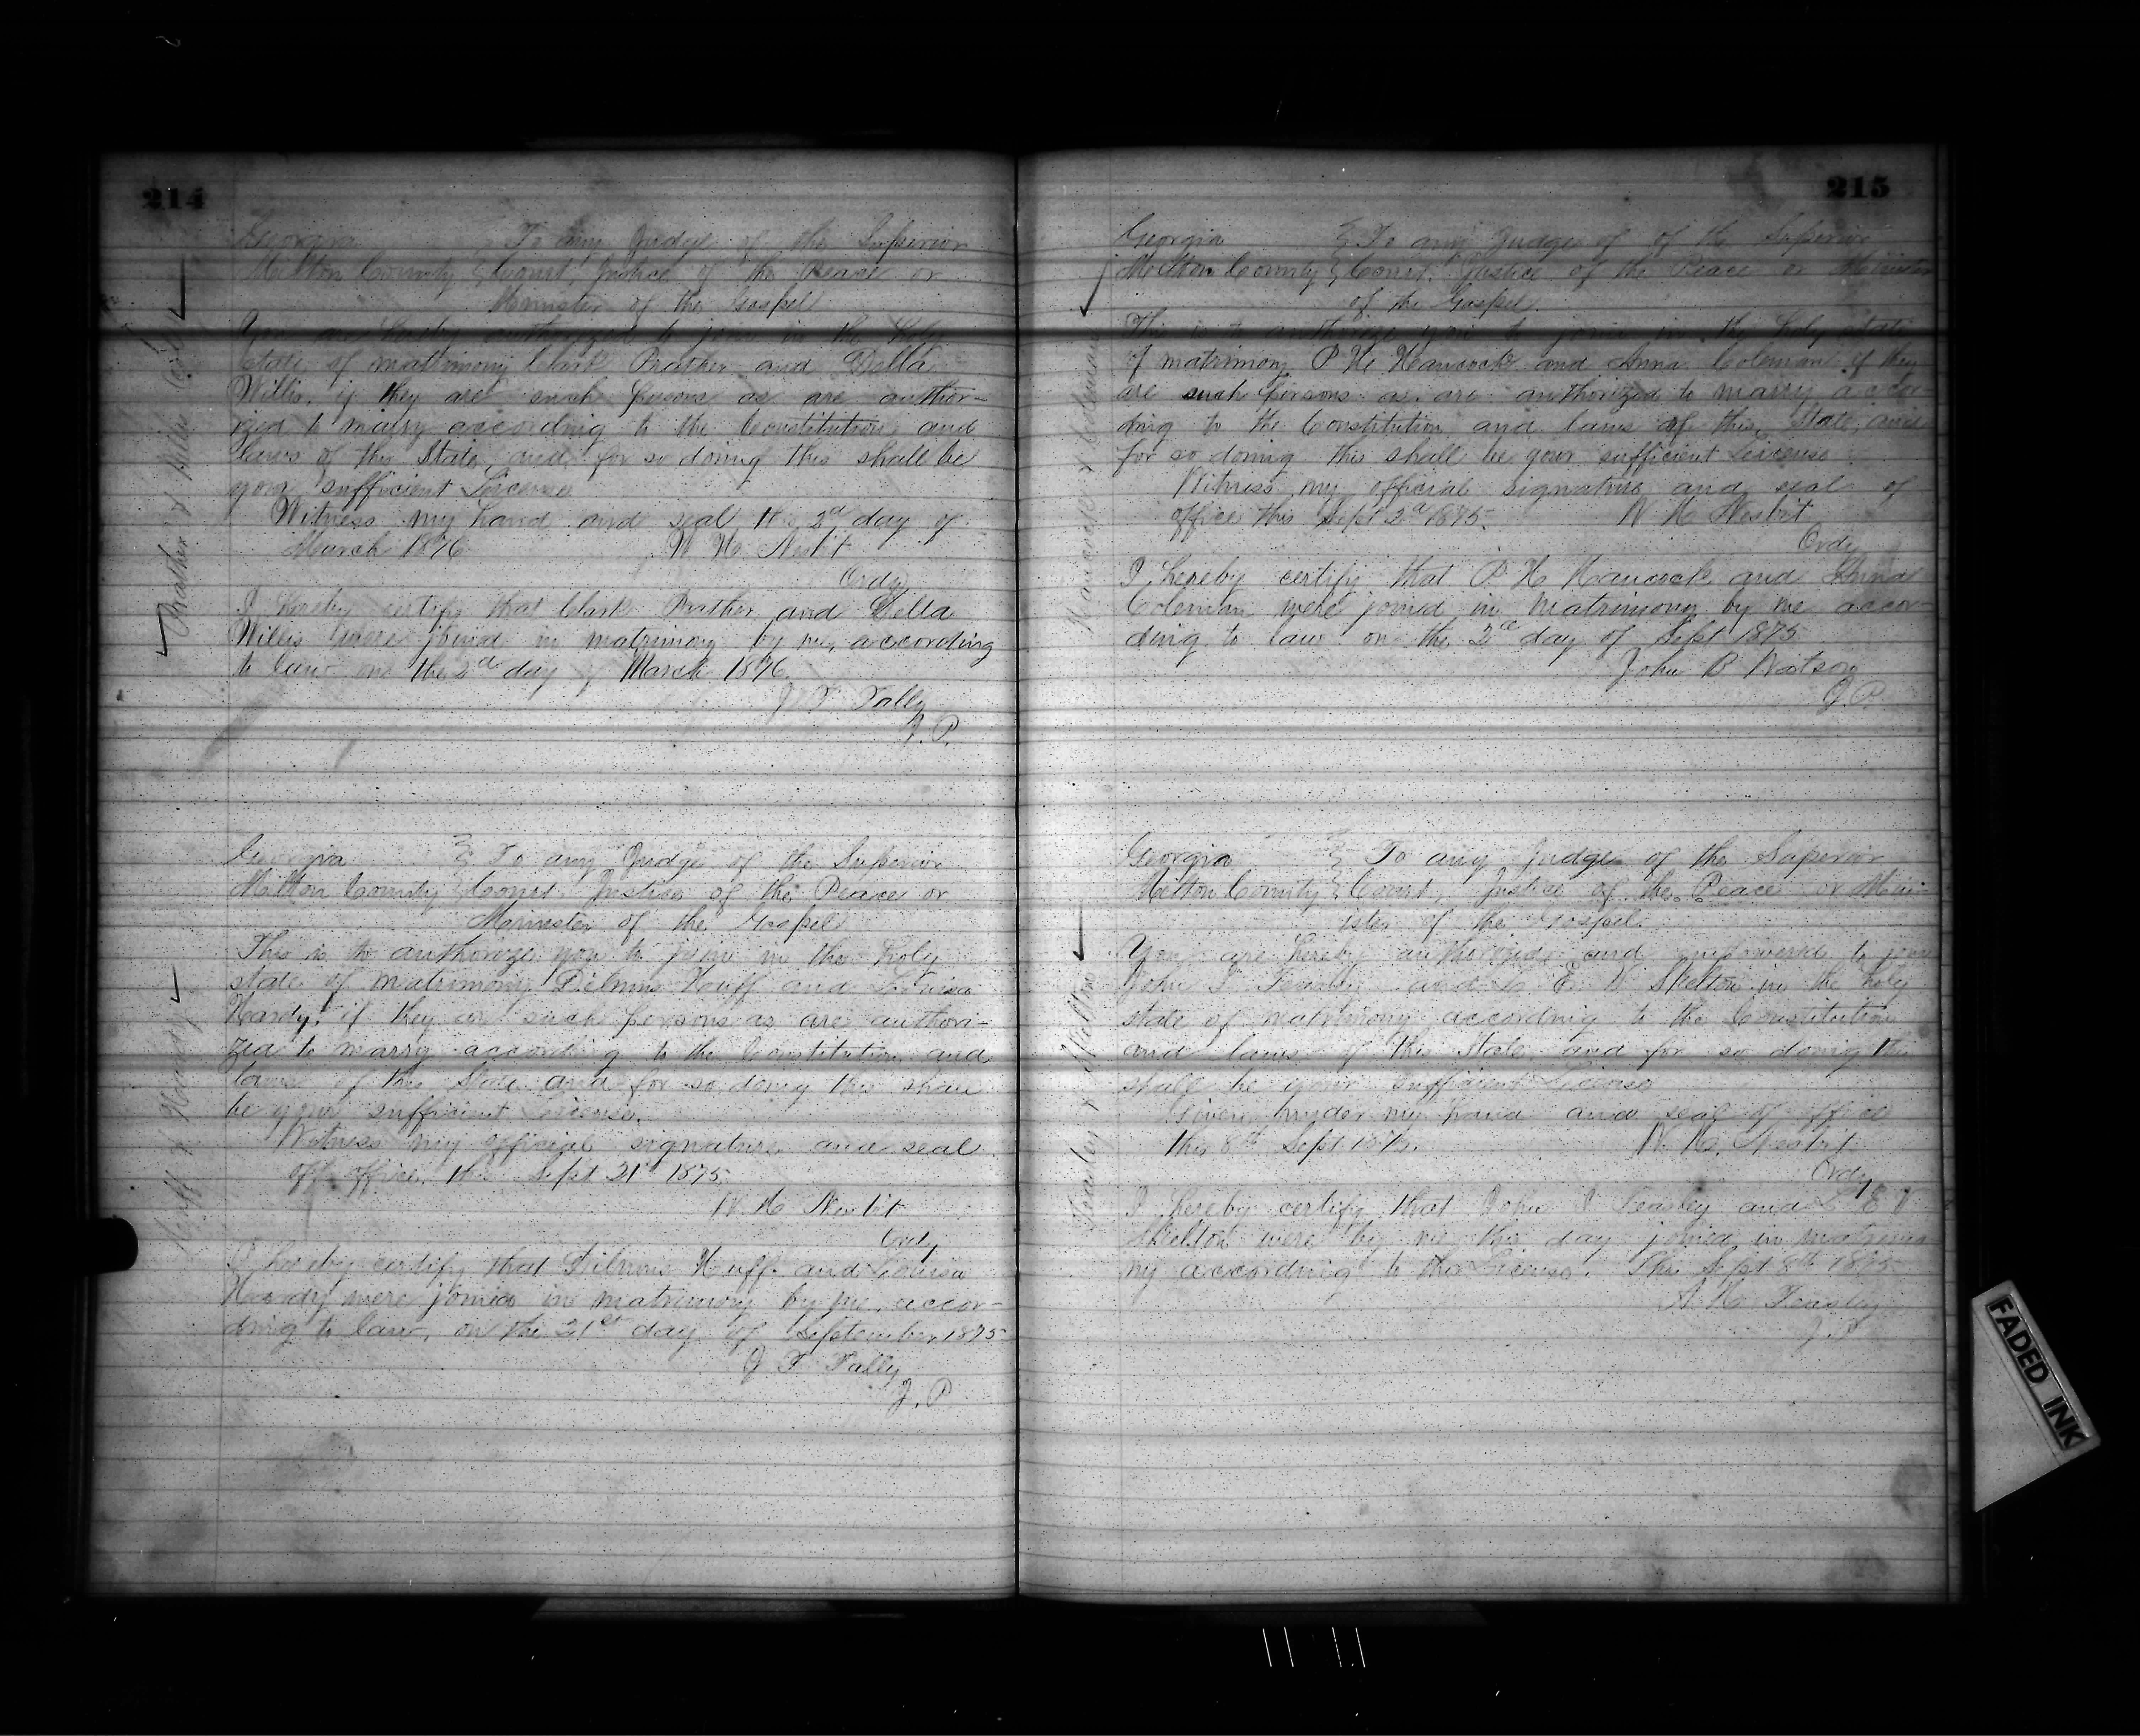 214
Georgia } To any Judge of the Superior
Milton County } Court, Justice of the Peace or
Minister of the Gospel
You are hereby authorized to join in the Holy
State of matrimony Clark Prather and Della
Willis, if they are such persons as are author-
ized to marry according to the Constitution and
laws of this State, and for so doing this shall be
your sufficient License
Witness my hand and seal this 2d day of
March 1876 W H Nesbit
Ordy
I hereby certify that Clark Prather and Della
Willis were joined in matrimony by me, according
to law on the 2d day of March 1876.
J F Tally
J.P.
Prather & Willis
Georgia } To any Judge of the Superior
Milton County } Court, Justice of the Peace or
Minister of the Gospel
This is to authorize you to join in the holy
state of matrimony Huff and Louisa
Hardy, if they are such persons as are authori-
zed to marry according to the Constitution and
laws of this State and for so doing this shall
be your sufficient License.
Witness my official signature and seal
off office, this Sept 21st 1875
W H Nesbit
Ordy
I hereby certify that Huff and Louisa
Hardy were joined in matrimony by me, accor-
ding to law, on the 21st day of September 1875
J F Tally
J. P
Huff & Hardy
215
Georgia } To any Judge of of the Superior
Milton County } Court, Justice of the Peace or Minister
of the Gospel.
This is to authorize you to join in the holy state
of matrimony P H Hancock and Anna Coleman if they
are such persons as are authorized to marry accor-
ding to the Constitution and laws of this State, and
for so doing this shall be your sufficient License
Witness my official signature and seal of
office this Sept 2d 1875. W H Nesbit
Ordy
I hereby certify that P H Hancock and Anna
Coleman were joined in matrimony by me accor-
ding to law on the 2d day of Sept 1875
John B Watson
J.P.
Hancock & Coleman
Georgia } To any Judge of the Superior
Milton County } Court, Justice of the Peace or Min-
ister of the Gospel.
You are hereby authorized and empowered to join
John Teasley and E Skelton in the holy
state of matrimony according to the Constitution
and laws of this State and for so doing this
shall be your sufficient License
Given under my hand and seal of office
this 8th Sept 1875. W H. Nesbit
Ordy
I hereby certify that John Teasley and E
Skelton were by me this day joined in matrimo-
ny according to this License. This Sept 8th 1875
A H Teasley
J.P.
Teasley & Skelton
FADED INK